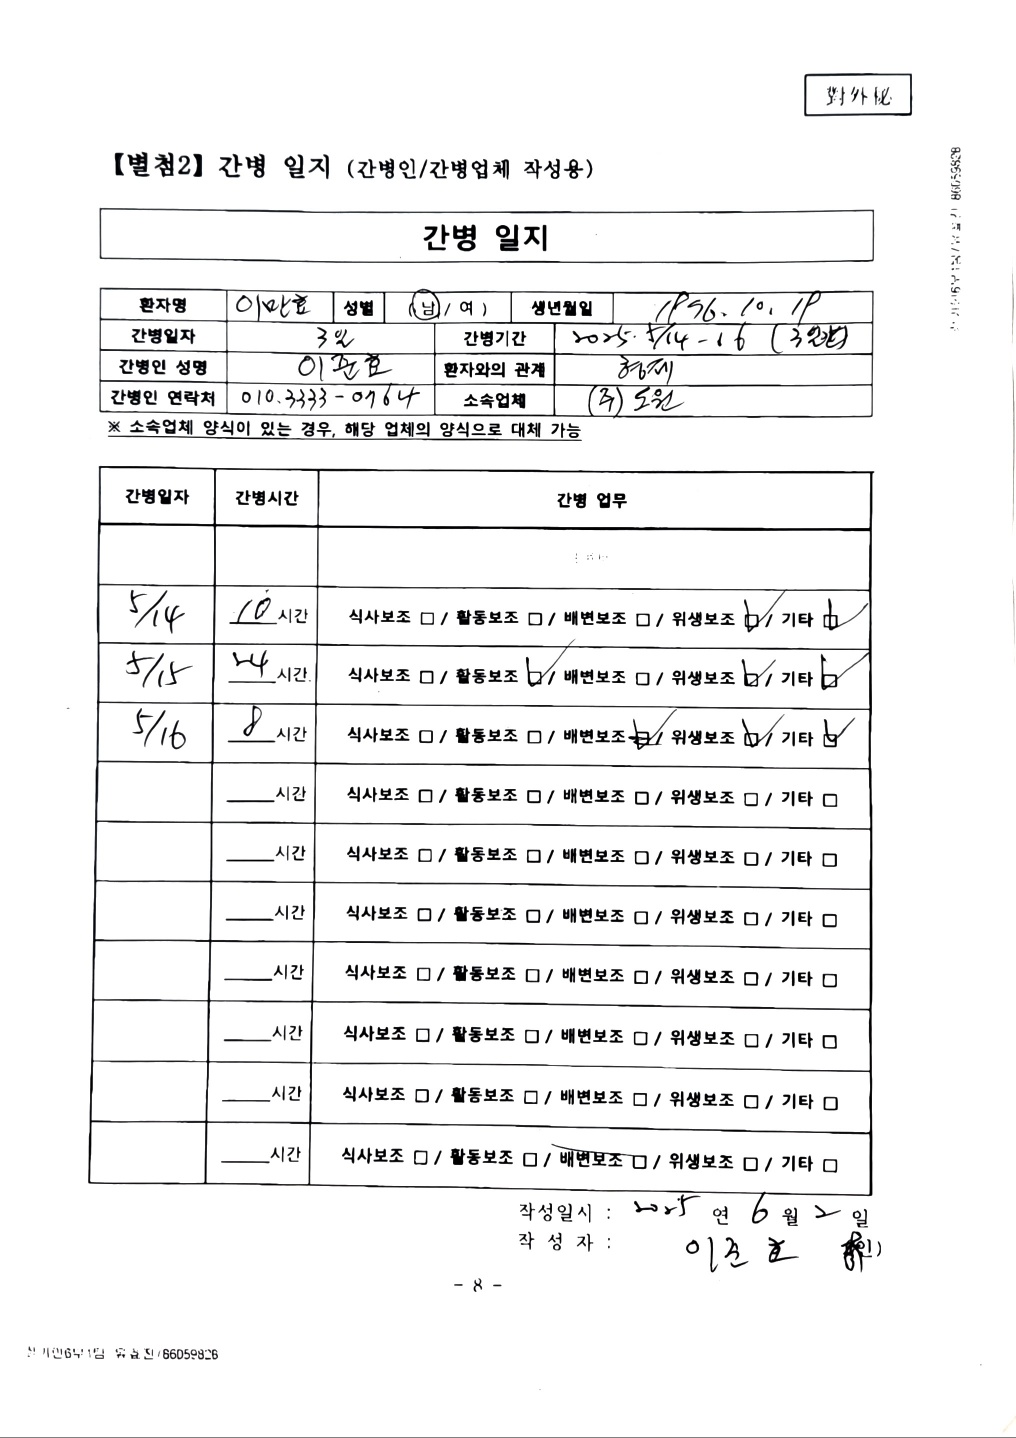 對外秘
【별첨2】 간병 일지 (간병인/간병업체 작성용)
간병 일지
환자명 이만호 성별 (남/여) 생년월일 1996.10.19
간병일자 3일 간병기간 2025.5/14-16 (3일간)
간병인 성명 이준호 환자와의 관계 형제
간병인 연락처 010.3333-0764 소속업체 (주)도원
※ 소속업체 양식이 있는 경우, 해당 업체의 양식으로 대체 가능
간병일자 간병시간 간병 업무
5/14 10 시간 식사보조 □ / 활동보조 □ / 배변보조 □ / 위생보조 ☑ / 기타 ☑
5/15 24 시간 식사보조 □ / 활동보조 ☑ / 배변보조 □ / 위생보조 ☑ / 기타 ☑
5/16 8 시간 식사보조 □ / 활동보조 □ / 배변보조 ☑ / 위생보조 ☑ / 기타 ☑
____시간 식사보조 □ / 활동보조 □ / 배변보조 □ / 위생보조 □ / 기타 □
____시간 식사보조 □ / 활동보조 □ / 배변보조 □ / 위생보조 □ / 기타 □
____시간 식사보조 □ / 활동보조 □ / 배변보조 □ / 위생보조 □ / 기타 □
____시간 식사보조 □ / 활동보조 □ / 배변보조 □ / 위생보조 □ / 기타 □
____시간 식사보조 □ / 활동보조 □ / 배변보조 □ / 위생보조 □ / 기타 □
____시간 식사보조 □ / 활동보조 □ / 배변보조 □ / 위생보조 □ / 기타 □
____시간 식사보조 □ / 활동보조 □ / 배변보조 □ / 위생보조 □ / 기타 □
작성일시 : 2025 연 6 월 2 일
작 성 자 : 이준호 (인)
- 8 -
/66059828